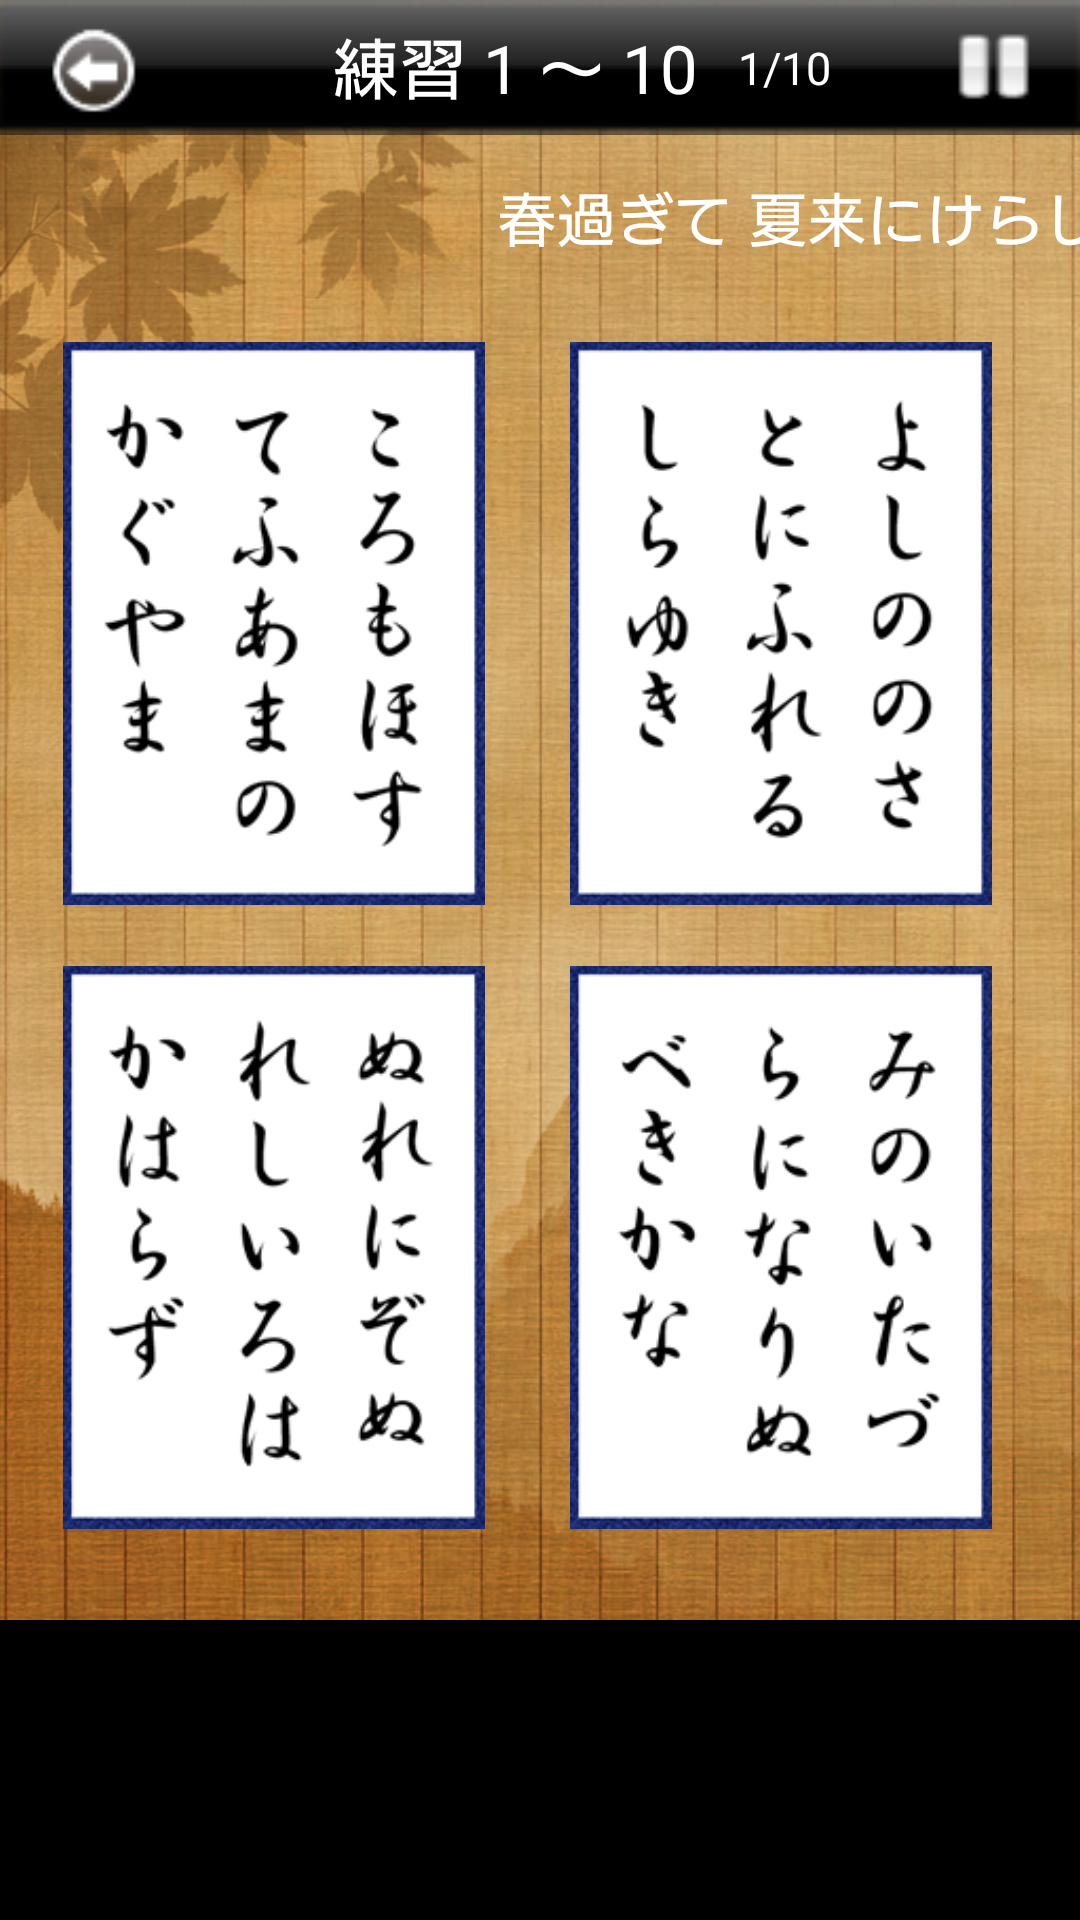 練習 1 ～ 10 1/10
春過ぎて 夏来にけらし
ころもほす
てふあまの
かぐやま
よしののさ
とにふれる
しらゆき
ぬれにぞぬ
れしいろは
かはらず
みのいたづ
らになりぬ
べきかな